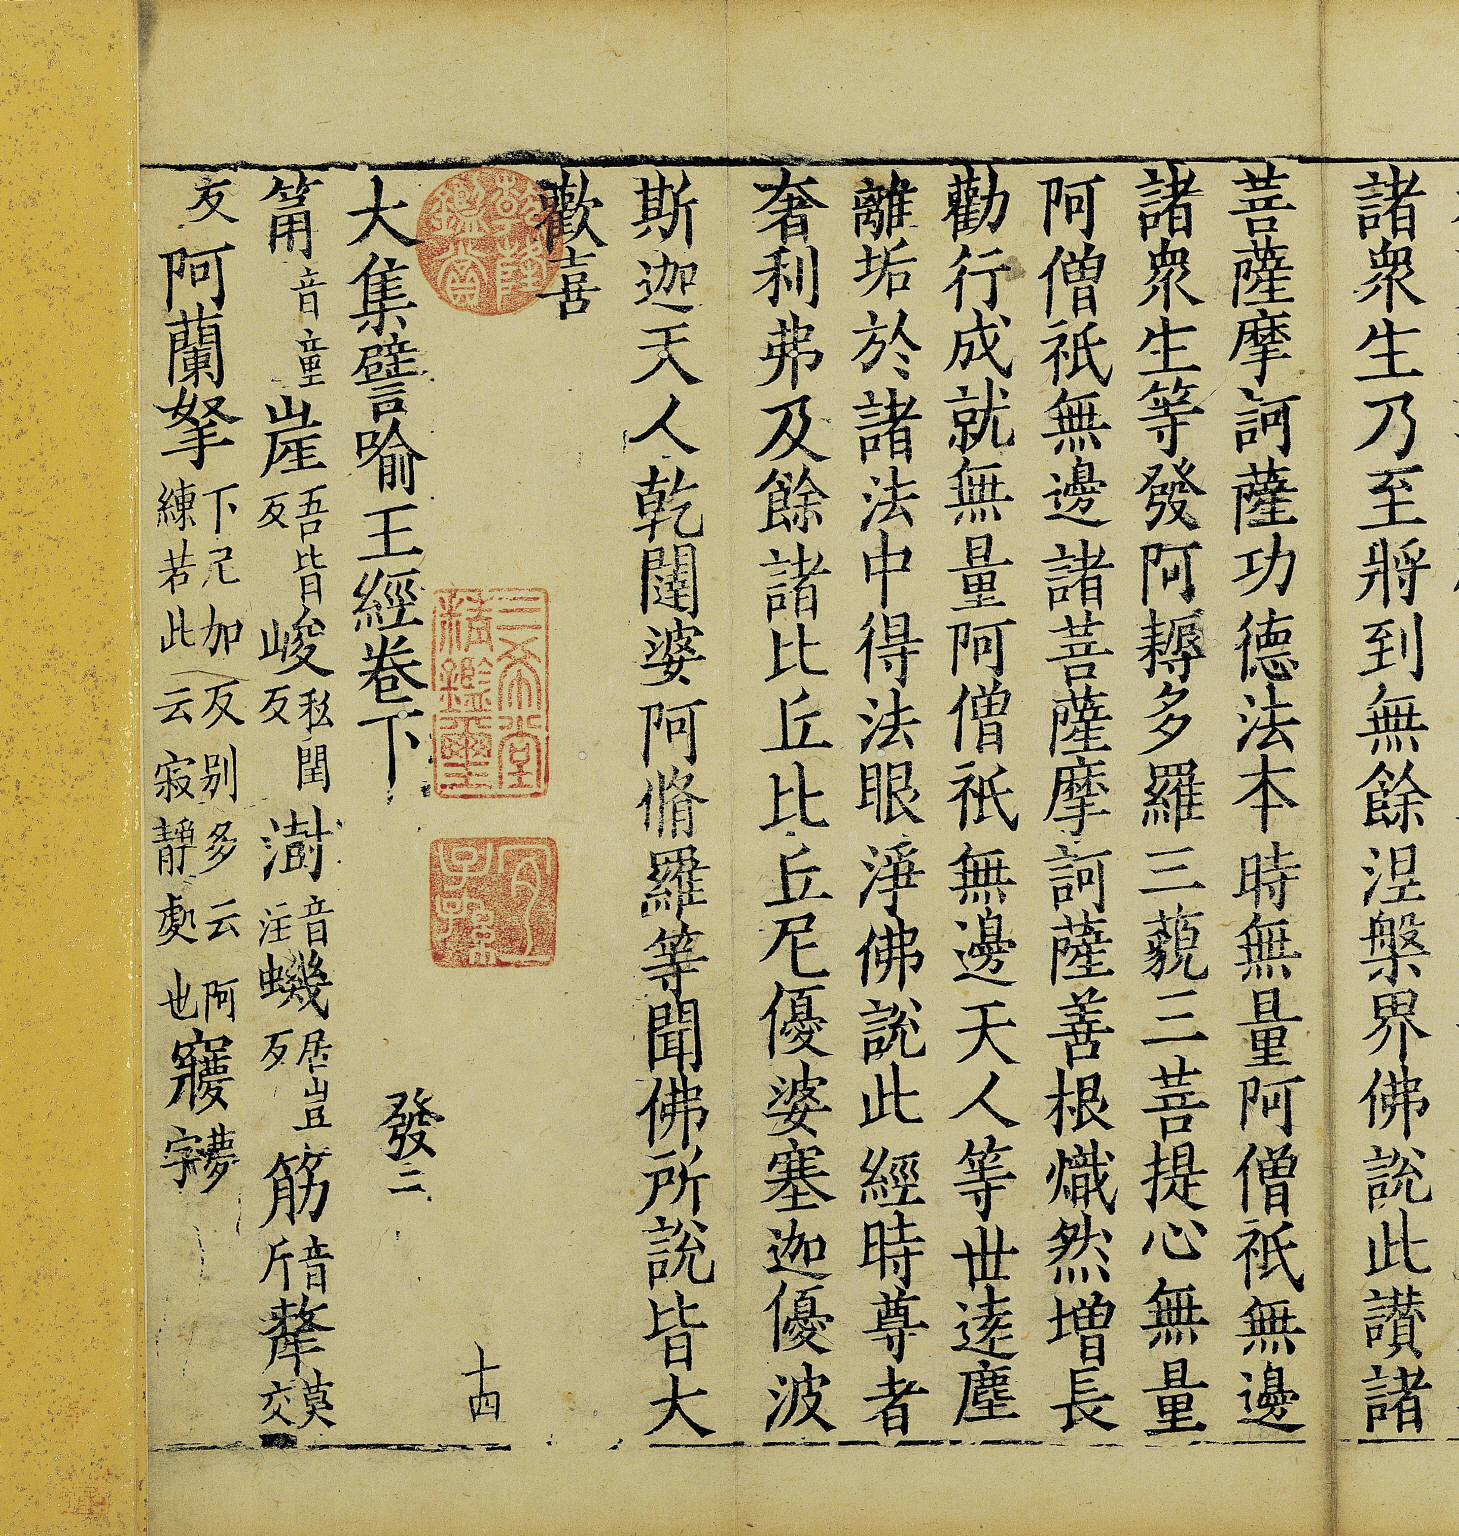 諸衆生乃至將到無餘涅槃界佛說此讃諸
菩薩摩訶薩功德法本時無量阿僧祇無邊
諸衆生等發阿耨多羅三藐三菩提心無量
阿僧祇無邊諸菩薩摩訶薩善根熾然增長
勸行成就無量阿僧祇無邊天人等世逺塵
離垢於諸法中得法眼淨佛說此經時尊者
奢利弗及餘諸比丘比丘尼優婆塞迦優波
斯迦天人乾闥婆阿脩羅等聞佛所說皆大
歡喜
乾隆鑑賞
三希堂精鑑璽
宜子孫
十四
大集譬喻王經卷下
發二
筩音童崖吾皆反峻私閏反澍音注蟣居豈反筋音斤犛莫交
反阿蘭拏下尼加反別多云阿練若此云寂靜處也㝱夢字